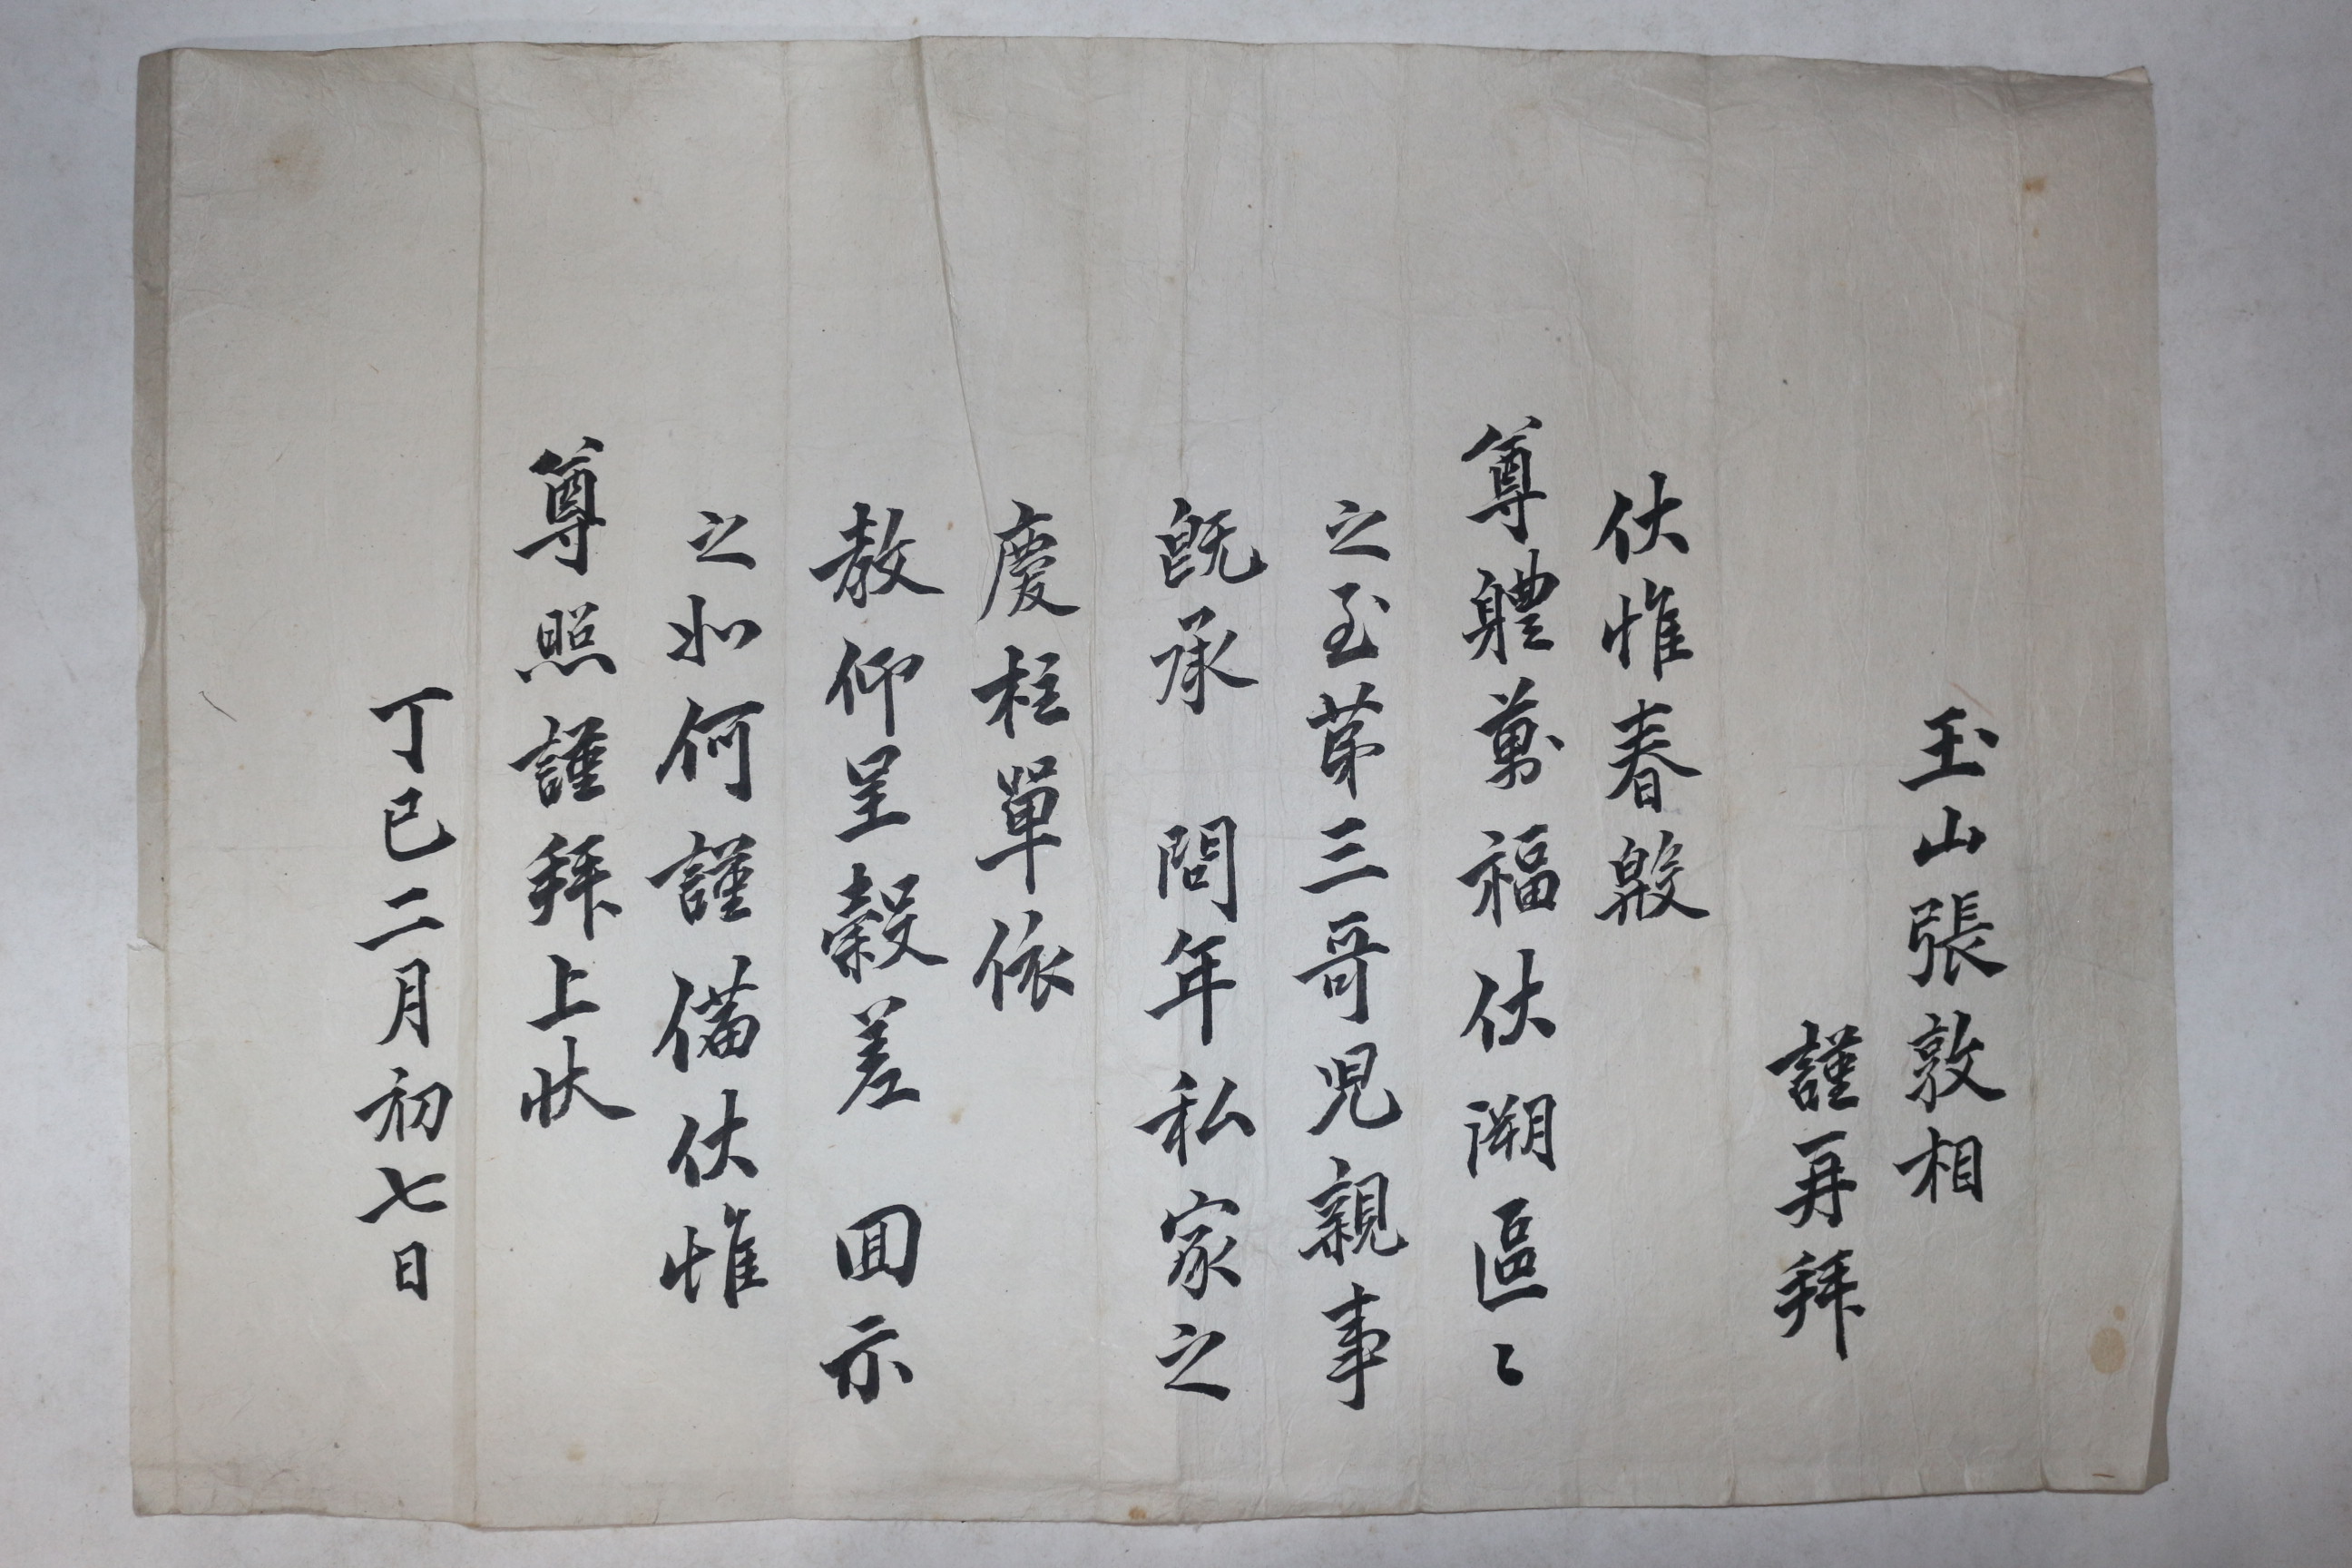 玉山張敦相
謹再拜
伏惟春殷
尊體萬福伏溯區〻
之至第三哥兒親事
旣承　問年私家之
慶柱單依
教仰呈穀差　回示
之如何謹備伏惟
尊照謹拜上狀
丁巳二月初七日